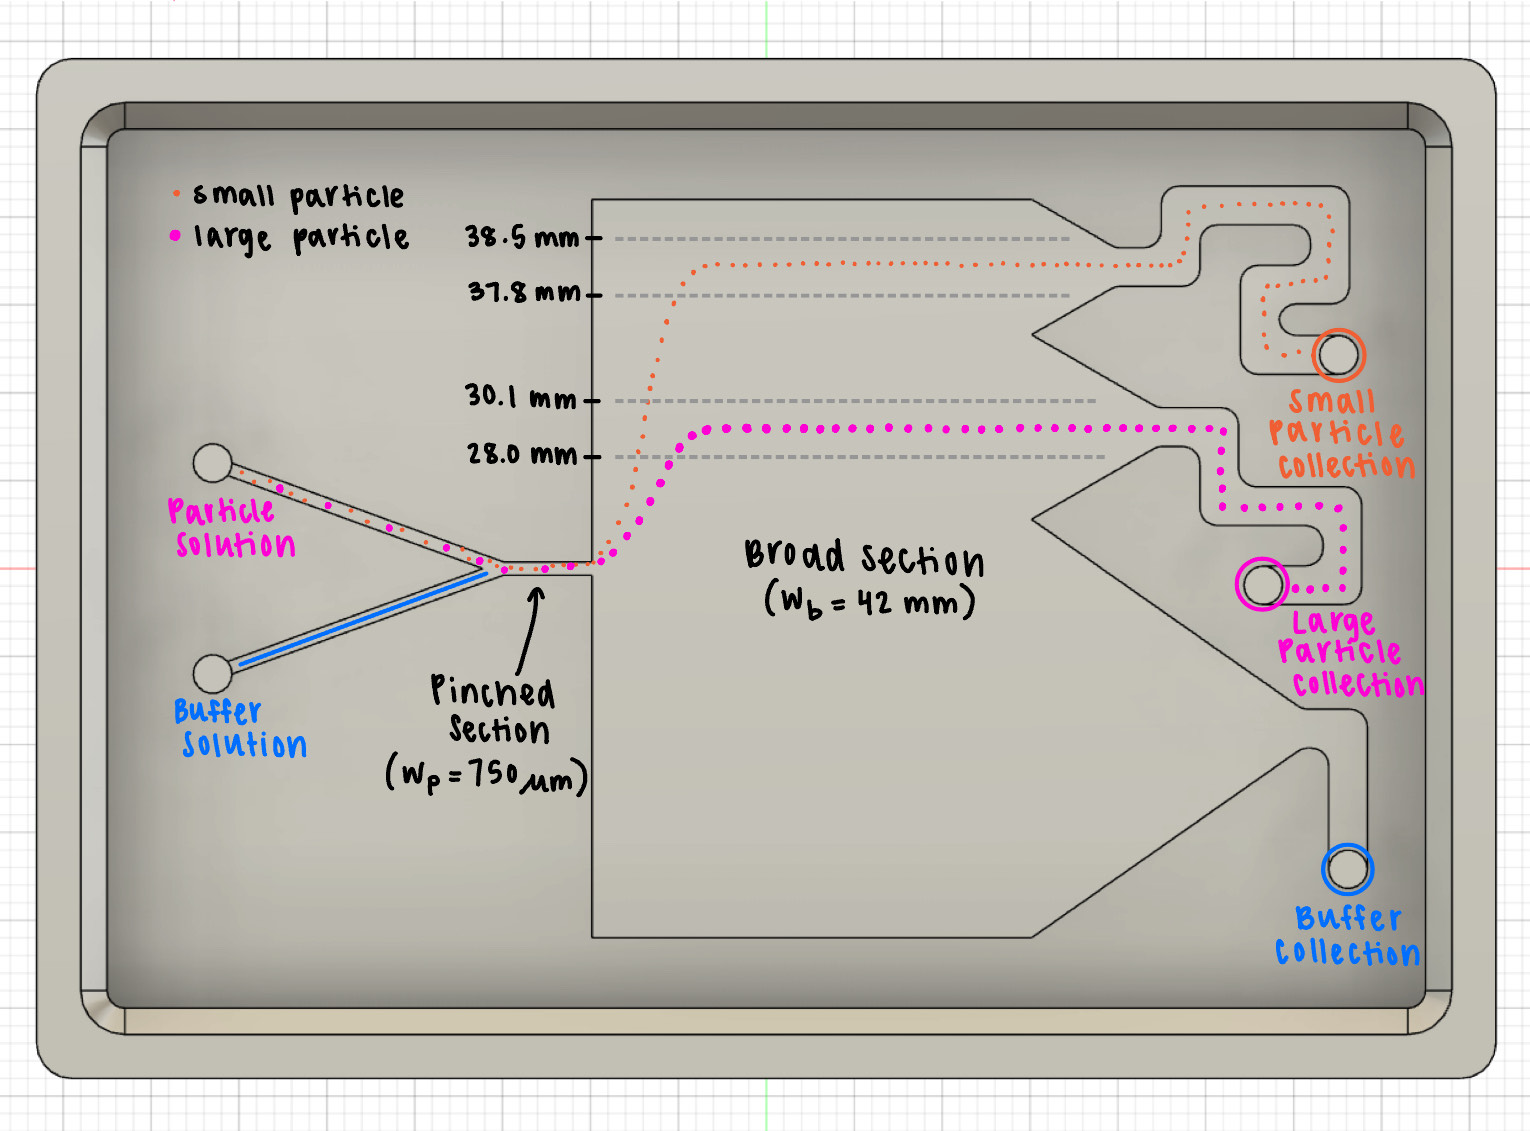 small particle
large particle
38.5 mm
37.8 mm
30.1 mm
28.0 mm
Particle
Solution
Buffer
Solution
Pinched
Section
(Wp = 750 μm)
Broad section
(Wb = 42 mm)
Small
Particle
Collection
Large
Particle
Collection
Buffer
Collection